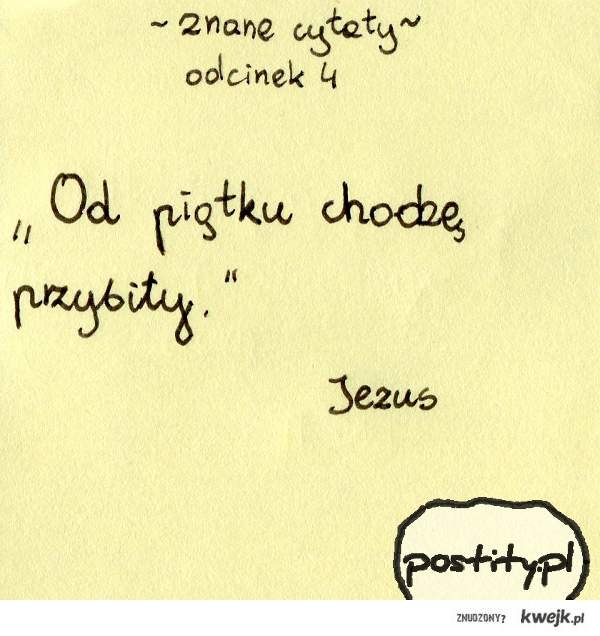 ~ znane cytaty ~
odcinek 4
„Od piątku chodzę
przybity.“
Jezus
postity.pl
ZNUDZONY? kwejk.pl